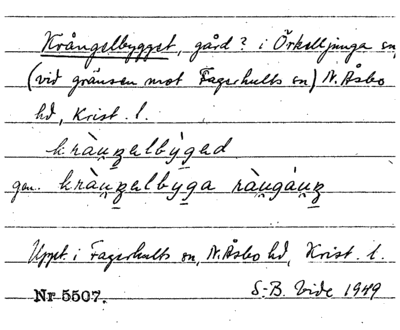 Krångelbygget, gård? i Örkelljunga sn,
(vid gränsen mot Fagerhults sn) N. Åsbo
hd, Krist. l.
kràu̯ŋəlbỳgəd
gm. kràu̯ŋəlbỳga ràu̯gáu̯ŋ
Uppt. i Fagerhults sn, N. Åsbo hd, Krist. l.
Nr 5507. S.-B. Vide 1949